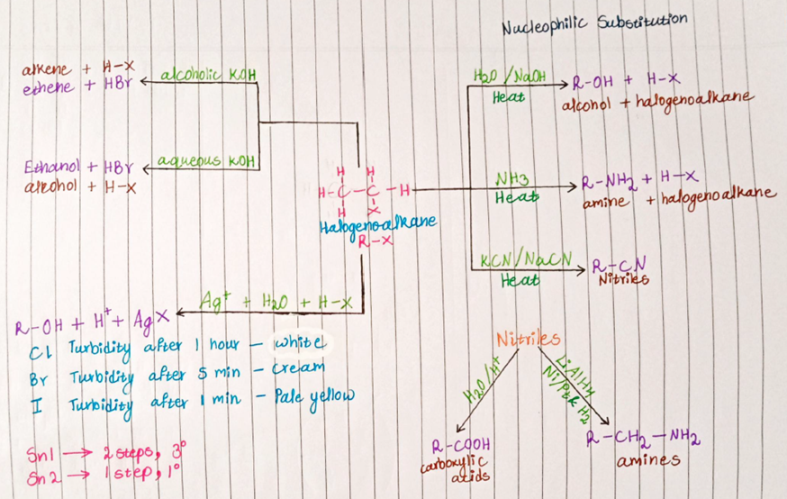 Nucleophilic Substitution
alkene + H-X
ethene + HBr
alcoholic KOH
Ethanol + HBr
alcohol + H-X
aqueous KOH
H H
H-C-C-H
H X
Halogenoalkane
R-X
H2O/NaOH
Heat
R-OH + H-X
alcohol + halogenoalkane
NH3
Heat
R-NH2 + H-X
amine + halogenoalkane
KCN/NaCN
Heat
R-CN
Nitriles
Ag+ + H2O + H-X
R-OH + H+ + AgX
Cl Turbidity after 1 hour - white
Br Turbidity after 5 min - cream
I Turbidity after 1 min - Pale yellow
Sn1 → 2 steps, 3°
Sn2 → 1 step, 1°
Nitriles
H2O/H+
LiAlH4
Ni/Pt& H2
R-COOH
carboxylic
acids
R-CH2-NH2
amines